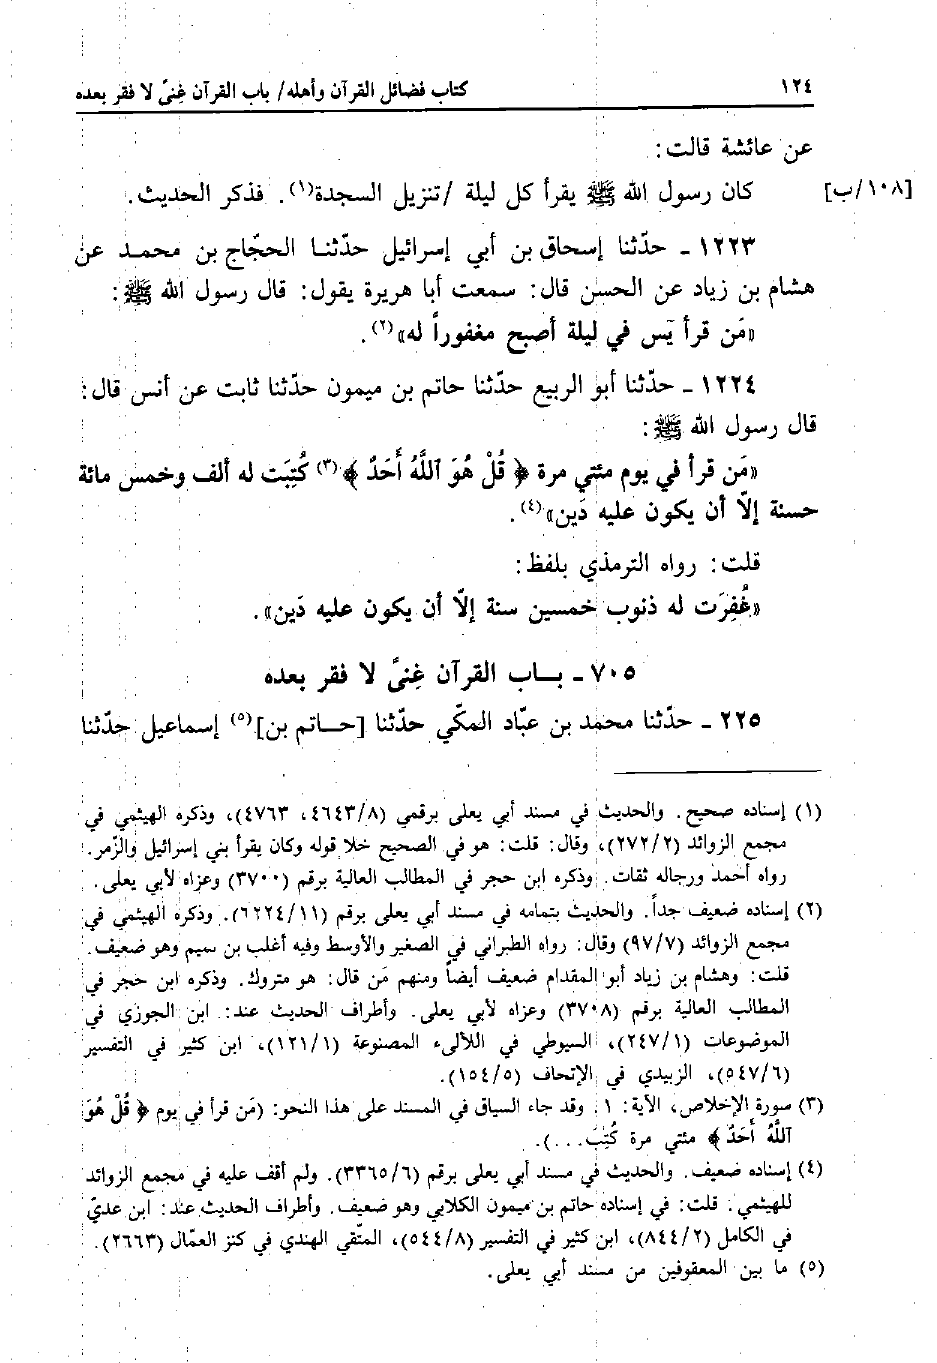 ١٢٤ كتاب فضائل القرآن وأهله/ باب القرآن غِنىً لا فقر بعده
عن عائشة قالت:
[١٠٨/ب] كان رسول الله ﷺ يقرأ كل ليلة /تنزيل السجدة(١). فذكر الحديث.
١٢٢٣ ـ حدّثنا إسحاق بن أبي إسرائيل حدّثنا الحجّاج بن محمد عن
هشام بن زياد عن الحسن قال: سمعت أبا هريرة يقول: قال رسول الله ﷺ:
«مَن قرأ يَس في ليلة أصبح مغفوراً له»(٢).
١٢٢٤ ـ حدّثنا أبو الربيع حدّثنا حاتم بن ميمون حدّثنا ثابت عن أنس قال:
قال رسول الله ﷺ:
«مَن قرأ في يوم مئتي مرة ﴿ قُلْ هُوَ ٱللَّهُ أَحَدٌ ﴾(٣) كُتِبَت له ألف وخمس مائة
حسنة إلاّ أن يكون عليه دَين»(٤).
قلت: رواه الترمذي بلفظ:
«غُفِرَت له ذنوب خمسين سنة إلاّ أن يكون عليه دَين».
٧٠٥ ـ بـاب القرآن غِنىً لا فقر بعده
٢٢٥ ـ حدّثنا محمد بن عبّاد المكّي حدّثنا [حـاتم بن](٥) إسماعيل حدّثنا
(١) إسناده صحيح. والحديث في مسند أبي يعلى برقمي (٤٦٤٣/٨، ٤٧٦٣)، وذكره الهيثمي في
مجمع الزوائد (٢٧٢/٢)، وقال: قلت: هو في الصحيح خلا قوله وكان يقرأ بني إسرائيل والزّمر.
رواه أحمد ورجاله ثقات. وذكره ابن حجر في المطالب العالية برقم (٣٧٠٠) وعزاه لأبي يعلى.
(٢) إسناده ضعيف جداً. والحديث بتمامه في مسند أبي يعلى برقم (٦٢٢٤/١١). وذكره الهيثمي في
مجمع الزوائد (٩٧/٧) وقال: رواه الطبراني في الصغير والأوسط وفيه أغلب بن تميم وهو ضعيف.
قلت: وهشام بن زياد أبو المقدام ضعيف أيضاً ومنهم مَن قال: هو متروك. وذكره ابن حجر في
المطالب العالية برقم (٣٧٠٨) وعزاه لأبي يعلى. وأطراف الحديث عند: ابن الجوزي في
الموضوعات (٢٤٧/١)، السيوطي في اللآلىء المصنوعة (١٢١/١)، ابن كثير في التفسير
(٥٤٧/٦)، الزبيدي في الإتحاف (١٥٤/٥).
(٣) سورة الإخلاص، الآية: ١. وقد جاء السياق في المسند على هذا النحو: (مَن قرأ في يوم ﴿ قُلْ هُوَ
ٱللَّهُ أَحَدٌ ﴾ مئتي مرة كُتِبَ...).
(٤) إسناده ضعيف. والحديث في مسند أبي يعلى برقم (٣٣٦٥/٦). ولم أقف عليه في مجمع الزوائد
للهيثمي. قلت: في إسناده حاتم بن ميمون الكلابي وهو ضعيف. وأطراف الحديث عند: ابن عديّ
في الكامل (٨٤٤/٢)، ابن كثير في التفسير (٥٤٤/٨)، المتّقي الهندي في كنز العمّال (٢٦٦٣).
(٥) ما بين المعقوفين من مسند أبي يعلى.